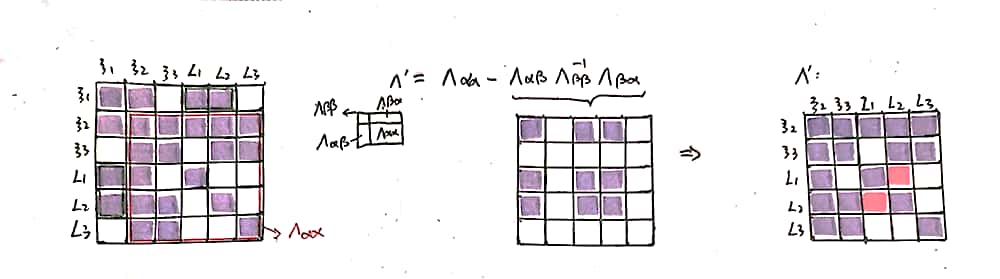 ξ₁ ξ₂ ξ₃ L₁ L₂ L₃
ξ₁
ξ₂
ξ₃
L₁
L₂
L₃
Λαα
Λ' = Λαα - Λαβ Λββ⁻¹ Λβα
Λββ
Λβα
Λαβ
Λαα
⇒
Λ':
ξ₂ ξ₃ L₁ L₂ L₃
ξ₂
ξ₃
L₁
L₂
L₃